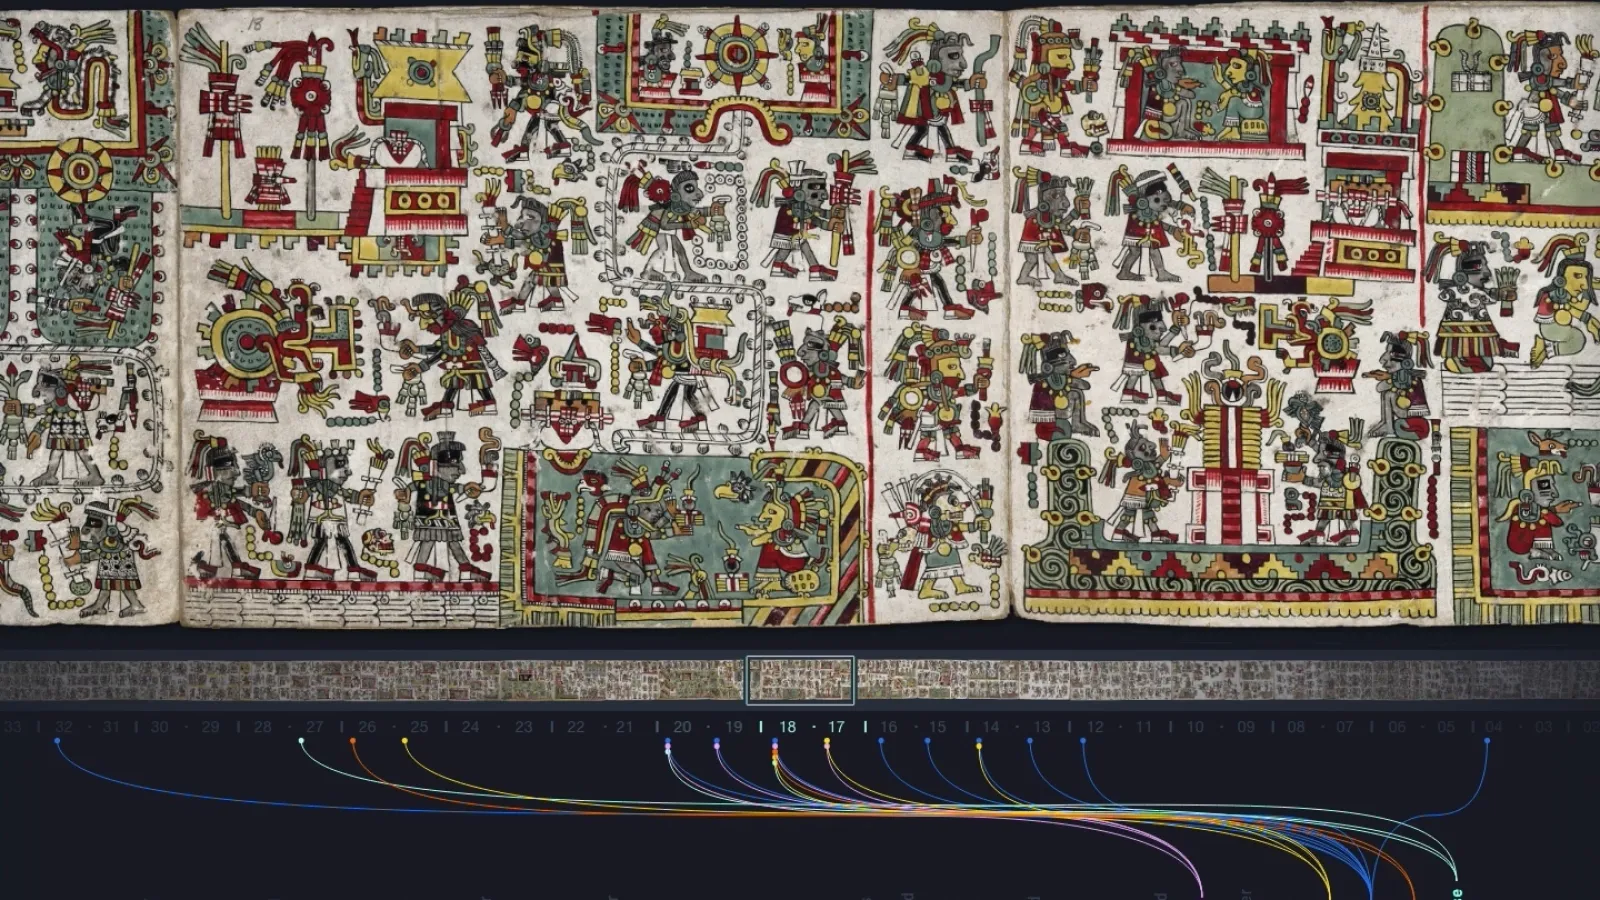 18
33 | 32 · 31 | 30 · 29 | 28 · 27 | 26 · 25 | 24 · 23 | 22 · 21 | 20 · 19 | 18 · 17 | 16 · 15 | 14 · 13 | 12 · 11 | 10 · 09 | 08 · 07 | 06 · 05 | 04 · 03 | 02